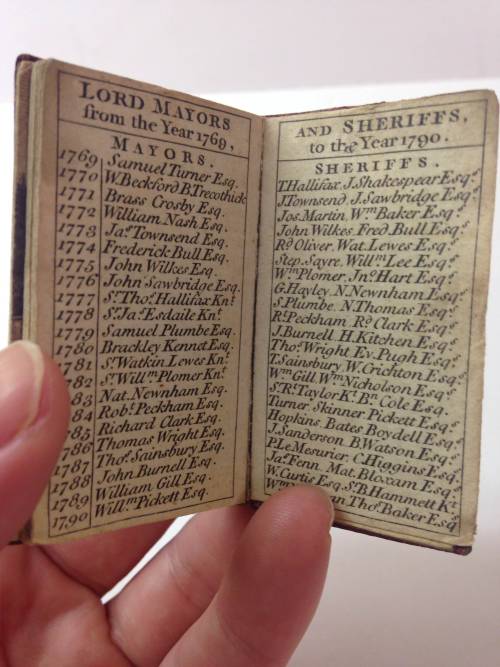 LORD MAYORS
from the Year 1769,
MAYORS.
1769 Samuel Turner Esq.
1770 W. Beckford B. Trecothick
1771 Brass Crosby Esq.
1772 William Nash Esq.
1773 Jaˢ. Townsend Esq.
1774 Frederick Bull Esq.
1775 John Wilkes Esq.
1776 John Sawbridge Esq.
1777 Sʳ. Thoˢ. Hallifax Knᵗ.
1778 Sʳ. Jaˢ. Esdaile Knᵗ.
1779 Samuel Plumbe Esq.
1780 Brackley Kennet Esq.
1781 Sʳ. Watkin Lewes Knᵗ.
1782 Sʳ. Willᵐ. Plomer Knᵗ.
83 Nat. Newnham Esq.
84 Robᵗ. Peckham Esq.
85 Richard Clark Esq.
1786 Thomas Wright Esq.
1787 Thoˢ. Sainsbury Esq.
1788 John Burnell Esq.
1789 William Gill Esq.
1790 Willᵐ. Pickett Esq.
AND SHERIFFS,
to the Year 1790.
SHERIFFS.
T. Hallifax. J. Shakespear Esqˢ.
J. Townsend. J. Sawbridge Esqˢ.
Jos. Martin. Wᵐ Baker Esqˢ.
John Wilkes. Fred. Bull Esqˢ.
Rᵈ Oliver. Wat. Lewes Esqˢ.
Step. Sayre. Willᵐ Lee Esqˢ.
Wᵐ Plomer. Jnº. Hart Esqˢ.
G. Hayley. N. Newnham Esqˢ.
S. Plumbe. N. Thomas Esqˢ.
Rᵗ. Peckham. Rᵈ. Clark Esqˢ.
J. Burnell. H. Kitchen Esqˢ.
Thoˢ. Wright. Ev. Pugh Esqˢ.
T. Sainsbury. W. Crichton Esqˢ.
Wᵐ Gill. Wᵐ Nicholson Esqˢ.
Sʳ. Rᵗ. Taylor Kᵗ. Bⁿ. Cole Esq.
Turner. Skinner. Pickett Esqˢ.
Hopkins. Bates. Boydell Esqˢ.
J. Sanderson. B. Watson Esqˢ.
P. Le Mesurier. C. Higgins Esqˢ.
Jaˢ. Fenn. Mat. Bloxam Esqˢ.
W. Curtis Esq. Sʳ. B. Hammett Kᵗ.
Wᵐ Thoˢ. Baker Esqˢ